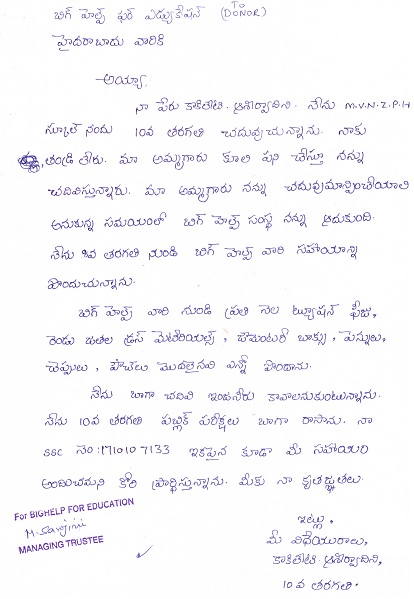 To
బిగ్ హెల్ప్ ఫర్ ఎడ్యుకేషన్ (DONOR)
హైదరాబాదు వారికి
అయ్యా.
నా పేరు కాకితోట. ఆశీర్వాదిని. నేను M.V.N.Z.P.H
స్కూల్ నందు 10వ తరగతి చదువుచున్నాను. నాకు
తండ్రి లేరు. మా అమ్మగారు కూలి పని చేస్తూ నన్ను
చదివిస్తున్నారు. మా అమ్మగారు నన్ను చదువుమాన్పించేయాలి
అనుకున్న సమయంలో బిగ్ హెల్ప్ సంస్థ నన్ను ఆదుకుంది.
నేను తరగతి నుండి బిగ్ హెల్ప్ వారి సహాయాన్ని
పొందుచున్నాను.
బిగ్ హెల్ప్ వారి నుండి ప్రతి నెల ట్యూషన్ ఫీజు,
రెండు జతల డ్రస్ మెటీరియల్స్, జామెంటరీ బాక్సు, పెన్నులు,
చెప్పులు, పౌచ్‌లు మొదలైనవి ఎన్నో పొందాను.
నేను బాగా చదివి ఇంజనీరు కావాలనుకుంటున్నాను.
నేను 10వ తరగతి పబ్లిక్ పరీక్షలు బాగా రాసాను. నా
SSC నెం: 1710107133 ఇకపైన కూడా మీ సహాయం
అందించమని కోరి ప్రార్థిస్తున్నాను. మీకు నా కృతజ్ఞతలు.
For BIGHELP FOR EDUCATION
M. Sarojini
MANAGING TRUSTEE
ఇట్లు,
మీ విధేయురాలు,
కాకితోట. ఆశీర్వాదిని,
10వ తరగతి.